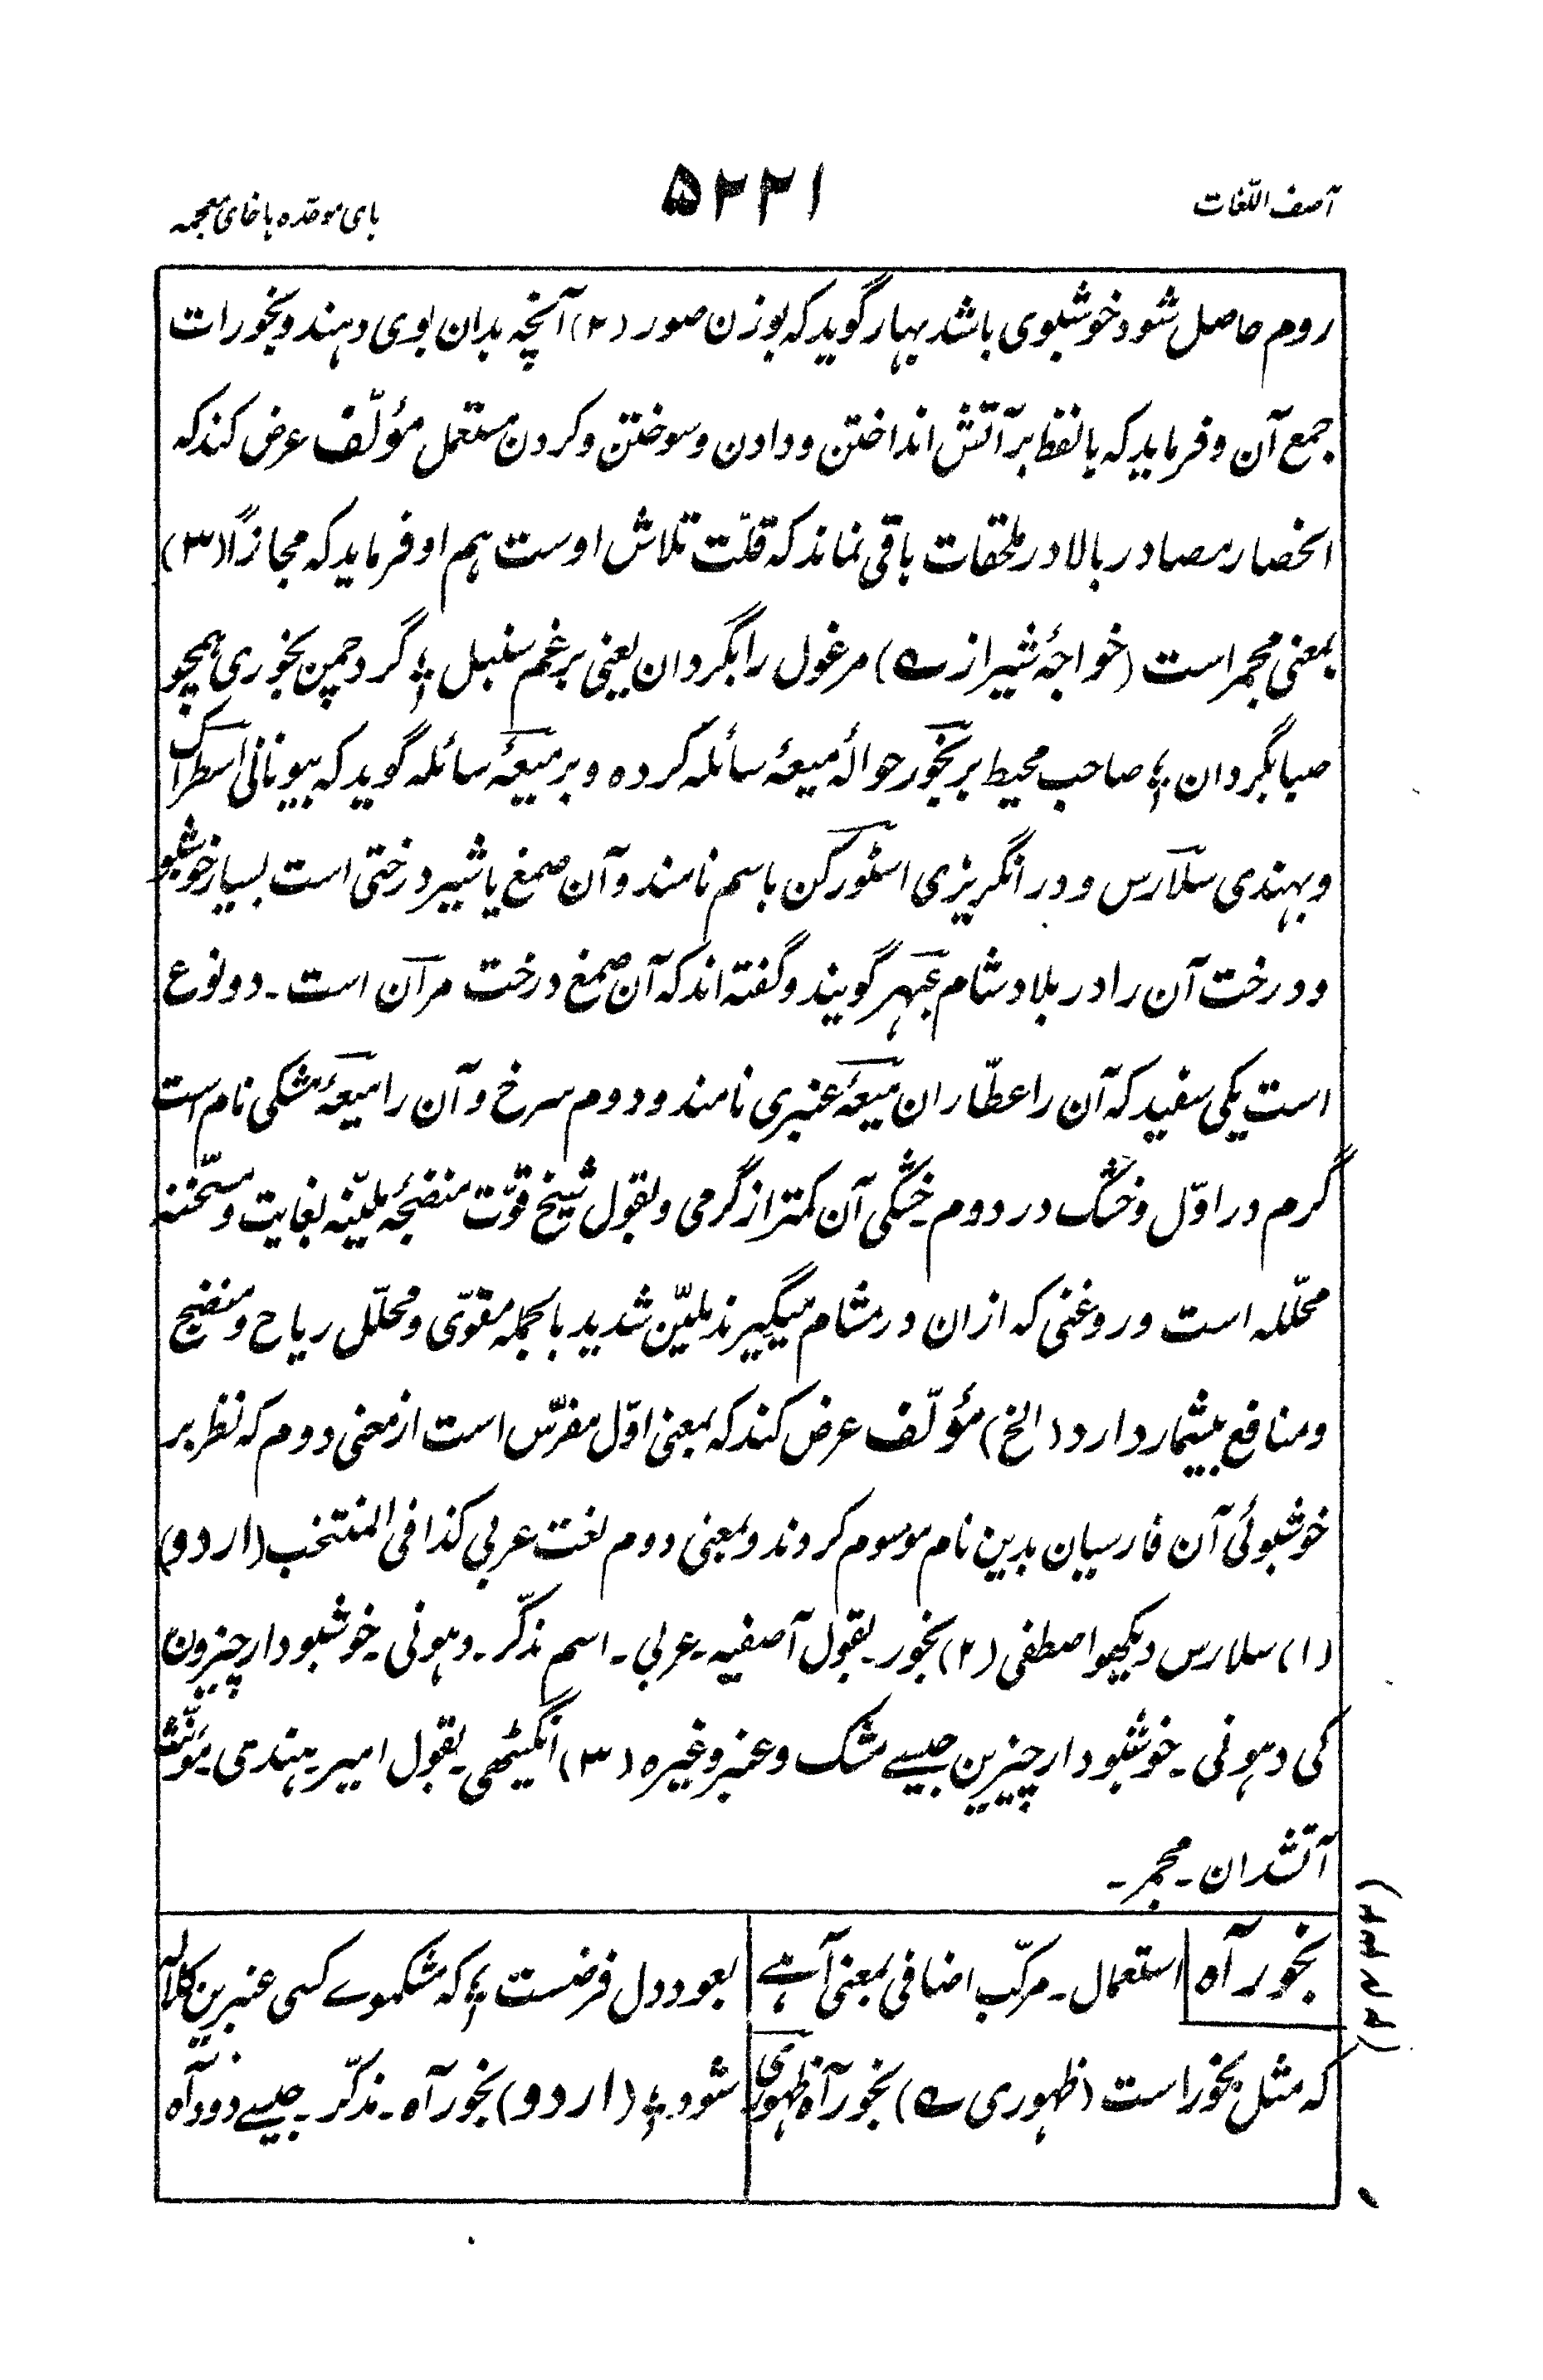 آصف اللّغات
۵۲۲۱
بای موحّده با خای معجمه
روم حاصل شود خوشبوی باشد بہار گوید کہ بوزن صور (۲) آنچہ بدان بوی دہند و بخورات
جمع آن و فرماید کہ بالفظ بر آتش انداختن و دادن و سوختن و کردن مستعمل مؤلّف عرض کند کہ
انحصار مصادر بالا در ملحقات باقی نماند کہ قلّت تلاش اوست ہم او فرماید کہ مجازاً (۳)
بمعنی مجمر است (خواجۂ شیراز ؎) مرغول را بگردان یعنی برغم سنبل ؛ گرد چمن بخوری ہمچو
صبا بگردان ؛ صاحب محیط بر بخور حوالۂ میعۂ سائلہ کردہ و بر میعۂ سائلہ گوید کہ بیونانی اسطراک
و بہندی سلارس و در انگریزی اسٹورکن باسم نامند و آن صمغ یا شیر درختی است بسیار خوشبو
و درخت آن را در بلاد شام عبہر گویند و گفتہ اند کہ آن صمغ درخت مرآن است ۔ دو نوع
است یکی سفید کہ آن را عطّاران میعۂ عنبری نامند و دوم سرخ و آن را میعۂ مشکی نام است
گرم در اوّل و خشک در دوم ۔ خشکی آن کمتر از گرمی و بقول شیخ قوّت منضجہ ملیّنہ بغایت و مسخّنہ
محلّلہ است و روغنی کہ ازان در مشام میگیرند ملیّن شدید بالجملہ مقوّی و محلّل ریاح و منضج
و منافع بیشمار دارد (الخ) مؤلّف عرض کند کہ بمعنی اوّل مفرّس است از معنی دوم کہ نظر بر
خوشبوئی آن فارسیان بدین نام موسوم کردند و بمعنی دوم لغت عربی کذا فی المنتخب (اردو)
(۱) سلارس دیکھو اصطفی (۲) بخور ۔ بقول آصفیہ ۔ عربی ۔ اسم مذکّر ۔ دہونی ۔ خوشبودار چیزون
کی دہونی ۔ خوشبودار چیزین جیسے مشک و عنبر وغیرہ (۳) انگیٹھی ۔ بقول امیر ۔ ہندی ۔ مؤنّث
آتشدان ۔ مجمر ۔
بخور آہ استعمال ۔ مرکّب اضافی بمعنی آہے
کہ مثل بخور است (ظہوری ؎) بخور آہ ظہوری
بعود دل فرضست ؛ کہ مشکموے کسی عنبرین کلالہ
شود ؛ (اردو) بخور آہ ۔ مذکّر ۔ جیسے دود آہ